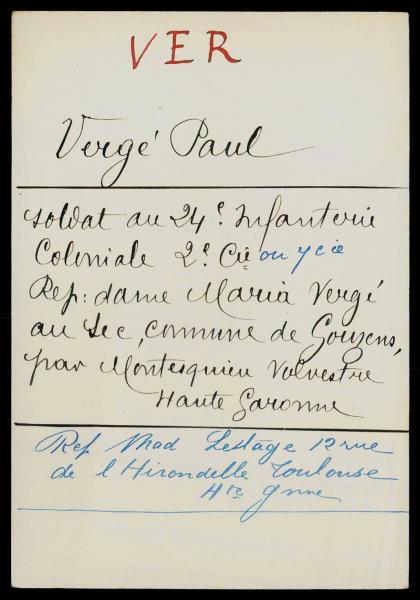 VER
Vergé Paul
soldat au 24e. Infanterie
Coloniale 2e. Cie ou 7 cie
Rep: dame Maria Vergé
au Sec, commune de Gouzens,
par Montesquieu Volvestre
Haute Garonne
Rep Mad Lestage 12 rue
de l Hirondelle Toulouse
Hte Gnne